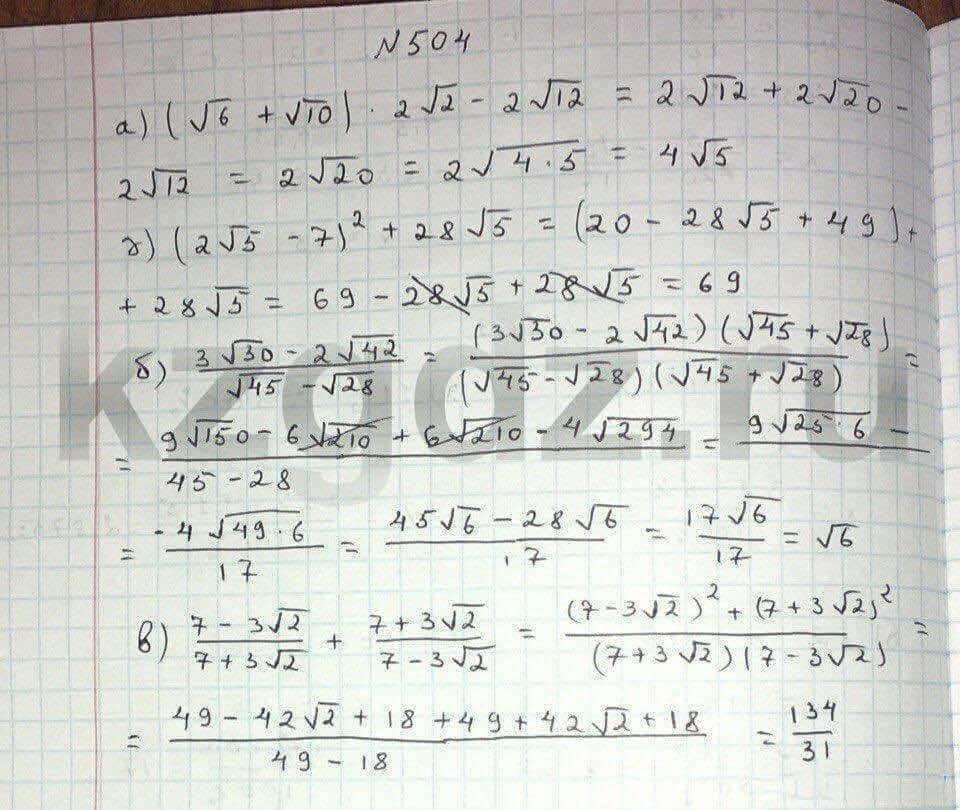 N504
а) (√6 + √10) · 2√2 - 2√12 = 2√12 + 2√20 -
2√12 = 2√20 = 2√(4·5) = 4√5
г) (2√5 - 7)² + 28√5 = (20 - 28√5 + 49) +
+ 28√5 = 69 - 28√5 + 28√5 = 69
б) (3√30 - 2√42)/(√45 - √28) = ((3√30 - 2√42)(√45 + √28))/((√45 - √28)(√45 + √28)) =
= (9√150 - 6√210 + 6√210 - 4√294)/(45 - 28) = 9√(25·6) -
= (-4√(49·6))/17 = (45√6 - 28√6)/17 = 17√6/17 = √6
в) (7 - 3√2)/(7 + 3√2) + (7 + 3√2)/(7 - 3√2) = ((7 - 3√2)² + (7 + 3√2)²)/((7 + 3√2)(7 - 3√2)) =
= (49 - 42√2 + 18 + 49 + 42√2 + 18)/(49 - 18) = 134/31
kzgdz.ru